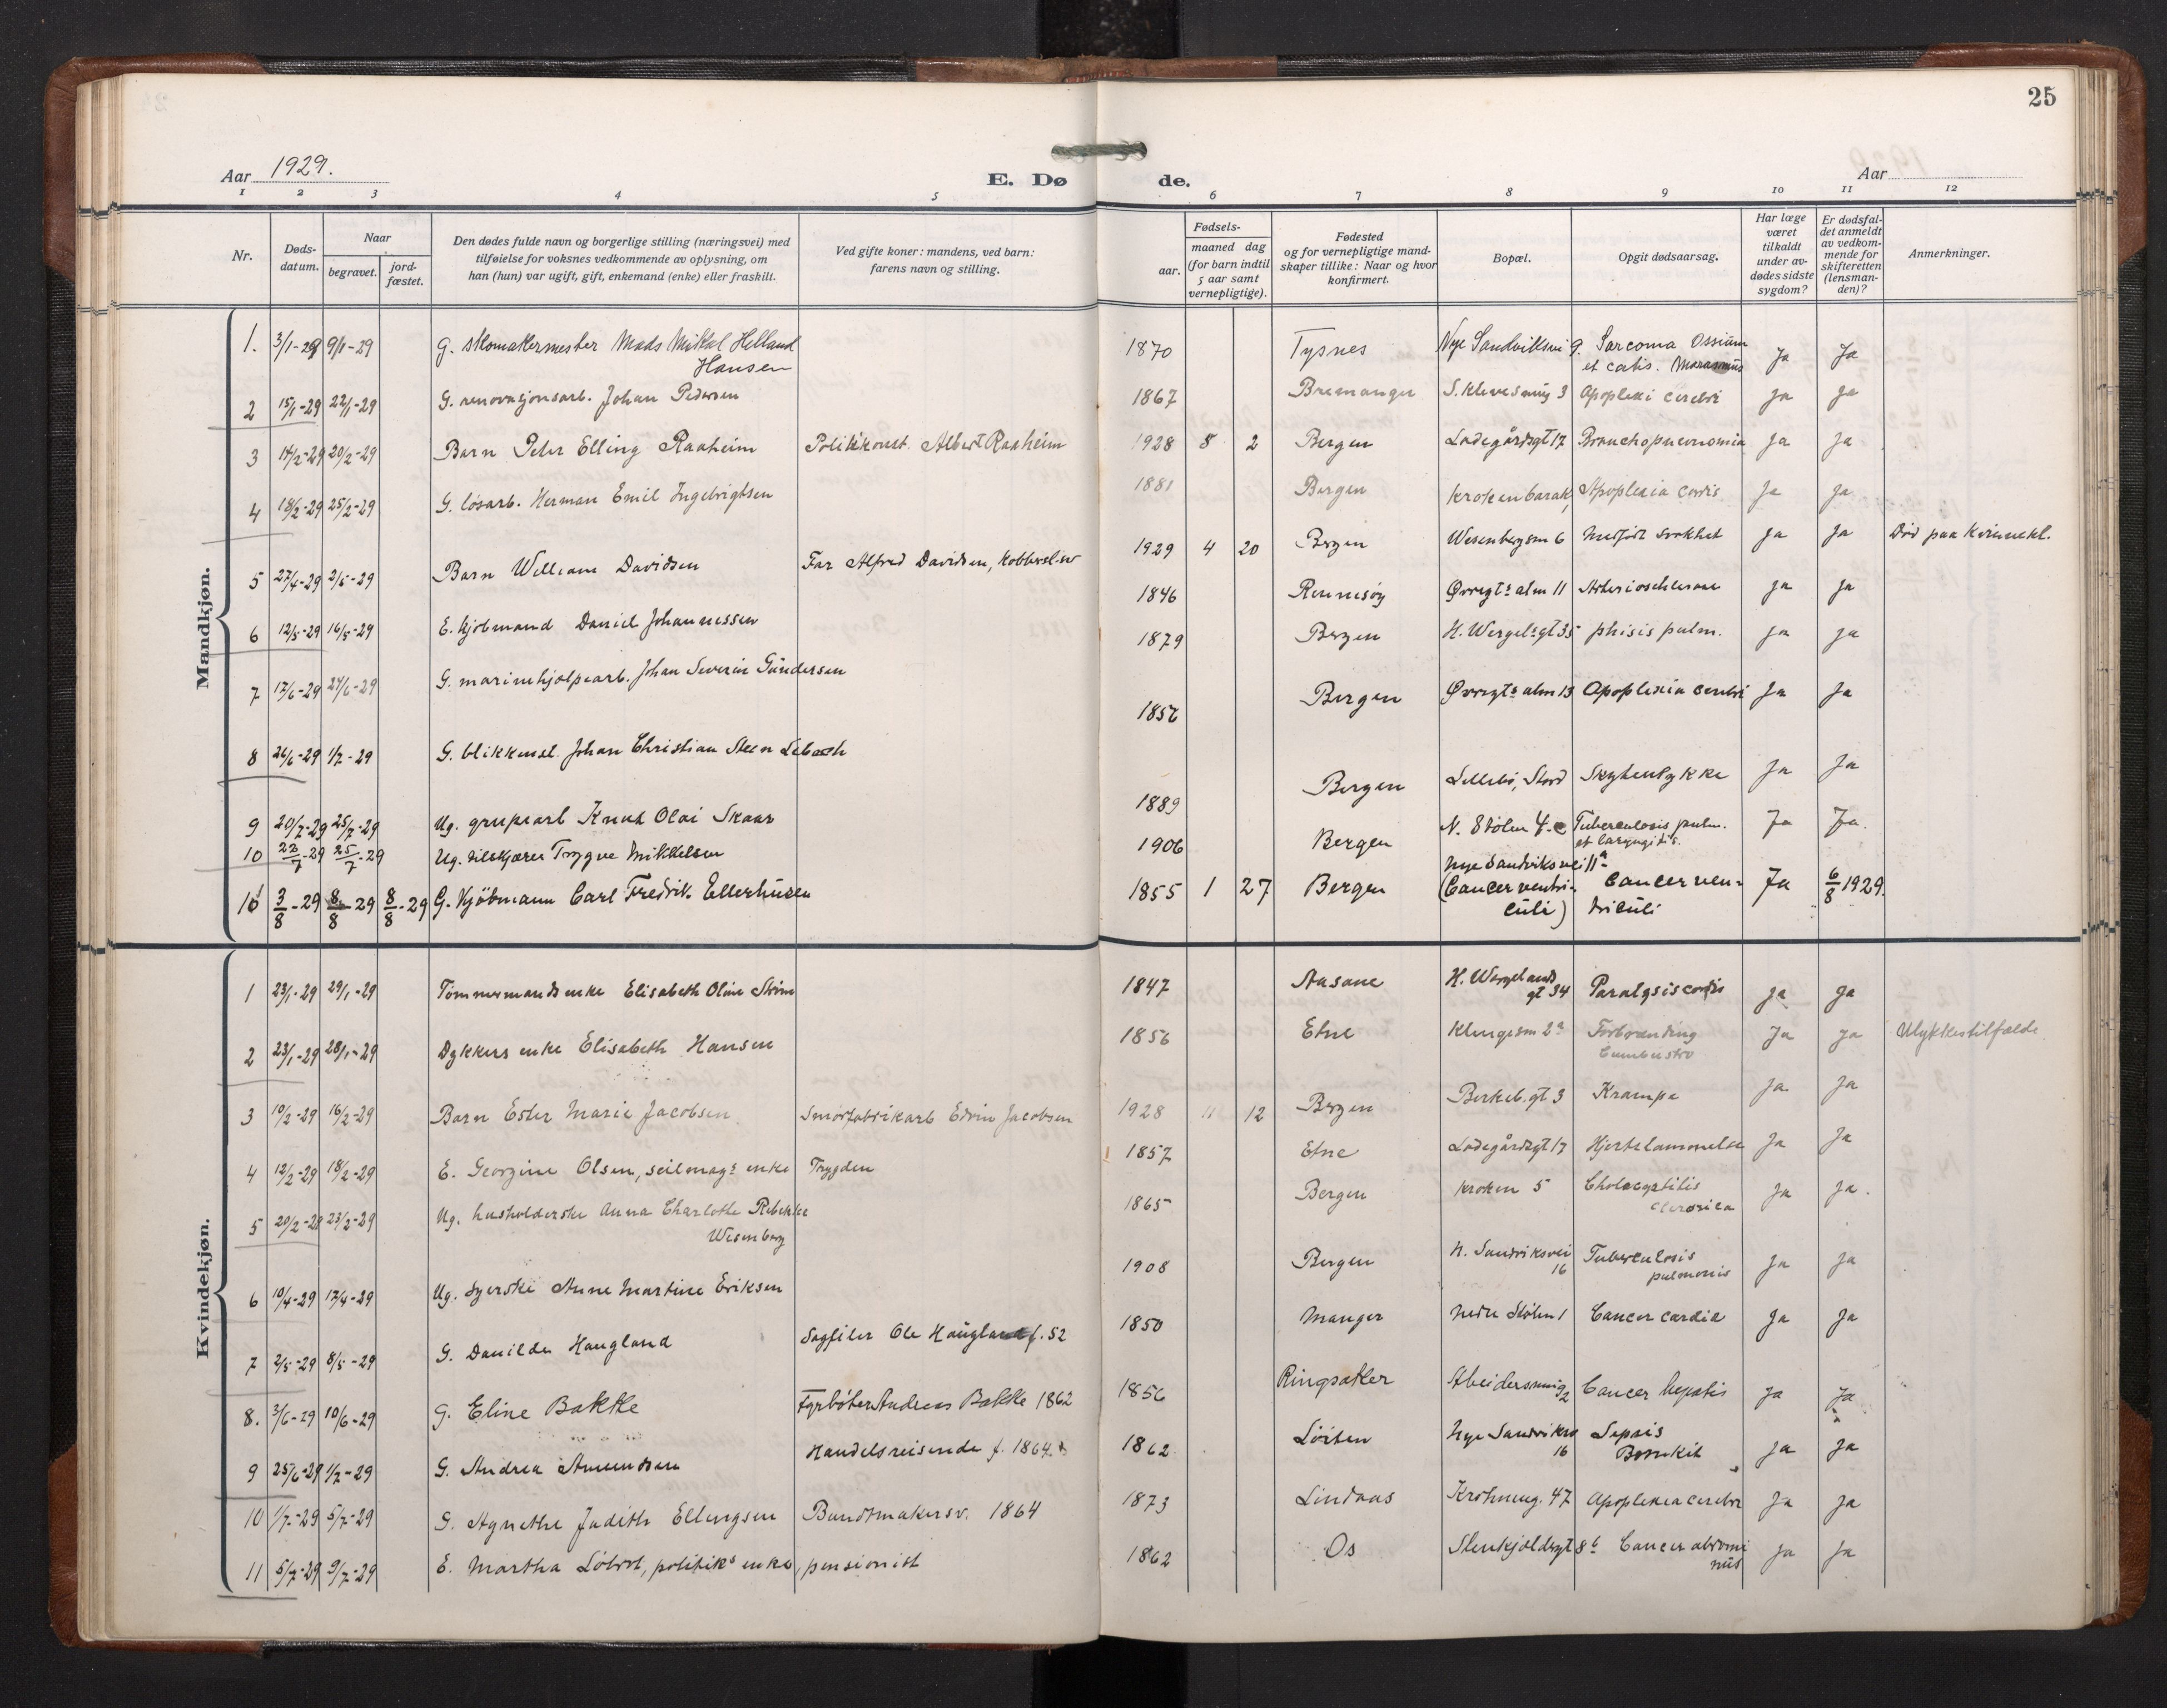 25
Aar 1929.
E. Dø de.
Aar
1 2 3 4 5 6 7 8 9 10 11 12
Nr.
Døds-
datum.
Naar
begravet.
jord-
fæstet.
Den dødes fulde navn og borgerlige stilling (næringsvei) med
tilføielse for voksnes vedkommende av oplysning, om
han (hun) var ugift, gift, enkemand (enke) eller fraskilt.
Ved gifte koner: mandens, ved barn:
farens navn og stilling.
Fødsels-
aar.
maaned dag
(for barn indtil
5 aar samt
vernepligtige).
Fødested
og for vernepligtige mand-
skaper tillike: Naar og hvor
konfirmert.
Bopæl.
Opgit dødsaarsag.
Har læge
været
tilkaldt
under av-
dødes sidste
sygdom?
Er dødsfal-
det anmeldt
av vedkom-
mende for
skifteretten
(lensman-
den)?
Anmerkninger.
Mandkjøn.
1. 3/1-29 9/1-29 G. skomakermester Mads Mikal Helland 1870 Tysnes Nye Sandviksvei 9. Sarcoma Ossium Ja Ja
Hansen et cutis. Marasmus
2 15/1-29 22/1-29 G. renovasjonsarb. Johan Pedersen 1867 Bremanger S. Klevesmug 3 Apoplexi cerebri Ja Ja
3 14/2-29 20/2-29 Barn Peter Elling Raaheim Politikonst. Albert Raaheim 1928 8 2 Bergen Ladegårdsgt 17 Bronchopneumonia Ja Ja
4 18/2-29 25/2-29 G. løsarb. Herman Emil Ingebrigtsen 1881 Bergen Kroken barak, Apoplexia cordis Ja Ja
5 27/4-29 2/5-29 Barn William Davidsen Far Alfred Davidsen, kobbersl.sv 1929 4 20 Bergen Wesenbergsm 6 Medfødt svakhet Ja Ja Død paa Kvinnekl.
6 12/5-29 16/5-29 E. kjøbmand Daniel Johannessen 1846 Rennesøy Øvregts alm 11 Arteriosclerose Ja Ja
7 17/6-29 24/6-29 G. marinehjelpearb. Johan Severin Gundersen 1879 Bergen H. Wergels.gt 35 phisis pulm. Ja Ja
8 26/6-29 1/7-29 G. blikkensl. Johan Christian Steen Lebach 1856 Bergen Øvregts alm 13 Apoplexia cerebri Ja Ja
9 20/7-29 25/7-29 Ug. grupearb Knut Olai Skaar 1889 Bergen Lillebø, Stord Ja Ja
10 22/7-29 25/7-29 Ug. tilskjærer Trygve Mikkelsen 1906 Bergen N. Stølen 4.c Tuberculosis pulm. Ja Ja.
et laryngitis.
11 3/8-29 8/8-29 8/8-29 G. Kjöbmann Carl Fredrik Ellerhusen 1855 1 27 Bergen Nye Sandviksvei 11a
(Cancer ventri- Cancer ven- Ja 6/8 1929.
culi) triculi
Kvindekjøn.
1 23/1-29 29/1-29 Tømmermands enke Elisabeth Oline Strøm 1847 Aasane H. Wergelands
gt 34 Paralysis cordis Ja Ja
2 23/1-29 28/1-29 Dykkers enke Elisabeth Hansen 1856 Etne Klingesm 2a Forbrænding Ja Ja Ulykkestilfælde
Cumbustio
3 10/2-29 16/2-29 Barn Ester Marie Jacobsen Smørfabrikarb Edvin Jacobsen 1928 11 12 Bergen Berkeb.gt 3 Krampe Ja Ja
4 12/2-29 18/2-29 E. Georgine Olsen, seilmags enke Trygden 1857 Etne Ladegårdsgt 17 Hjertelammelse Ja Ja
5 20/2-29 23/2-29 Ug. husholderske Anna Charlotte Rebekke 1865 Bergen Kroken 5 Cholecystitis Ja Ja.
Wesenberg
6 10/4-29 17/4-29 Ug. Syerske Anne Martine Eriksen 1908 Bergen N. Sandviksvei
16 Tuberculosis Ja Ja
pulmonis
7 2/5-29 8/5-29 G. Danilde Haugland Sagfiler Ole Haugland f. 52 1850 Manger Nedre Stølen 1 Cancer cardia Ja Ja
8. 3/6-29 10/6-29 G. Eline Bakke Fyrbøter Andreas Bakke 1862 1856 Ringsaker Abeidersmug
2 Cancer hepatis Ja Ja
9 25/6-29 1/7-29 G. Andrea Amundsen Handelsreisende f. 1864. 1862 Löiten Nye Sandviksv
16 Sepsis Ja Ja
10 1/7-29 5/7-29 G. Agnethe Judith Ellingsen Buntmakersv. 1864 1873 Lindaas Krohneng. 47 Apoplexia cerebri Ja Ja
11 5/7-29 9/7-29 E. Martha politiks enke, pensionist 1862 Os Stenkjeldergt 8b Cancer abdomi Ja Ja
nus